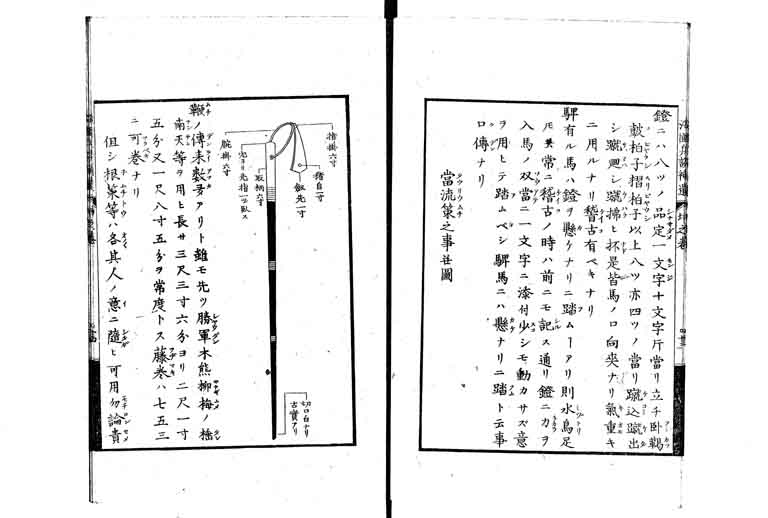 鐙ニハ八ツノ品定一文字十文字片當リ立チ卧鞨
皷柏子摺柏子以上八ツ亦四ツノ當リ蹴込蹴出
シ蹴廻シ蹴拂ヒ抔是皆馬ノ口向夾ナリ氣重キ
ニ用ルナリ稽古有ベキナリ
騨有ル馬ハ鐙ヲ懸ケナリニ踏ムーアリ則水鳥足
モ異常ニ稽古ノ時ハ前ニモ記ス通リ鐙ニカヲ
入馬ノ双當ニ一文字ニ添付少シモ動カサズ意
ヲ用ヒテ踏ムベシ騨馬ニハ懸ナリニ踏ト云事
口傳ナリ
當流策之事并圖
指掛六寸
猪自二寸
釼先一寸
取柄六寸
腕掛六寸
鞭ノ傳末数多アリト雖モ先ツ勝軍木熊柳梅ノ楉
南天等ヲ用ヒ長サ三尺三寸六分ヨリ二尺一寸
五分又一尺八寸五分ヲ常度トス藤巻ハ七五三
ニ可巻ナリ
但シ根策等ハ各其人ノ意ニ隨ヒ可用勿論責
切口白ナリ
古實アリ